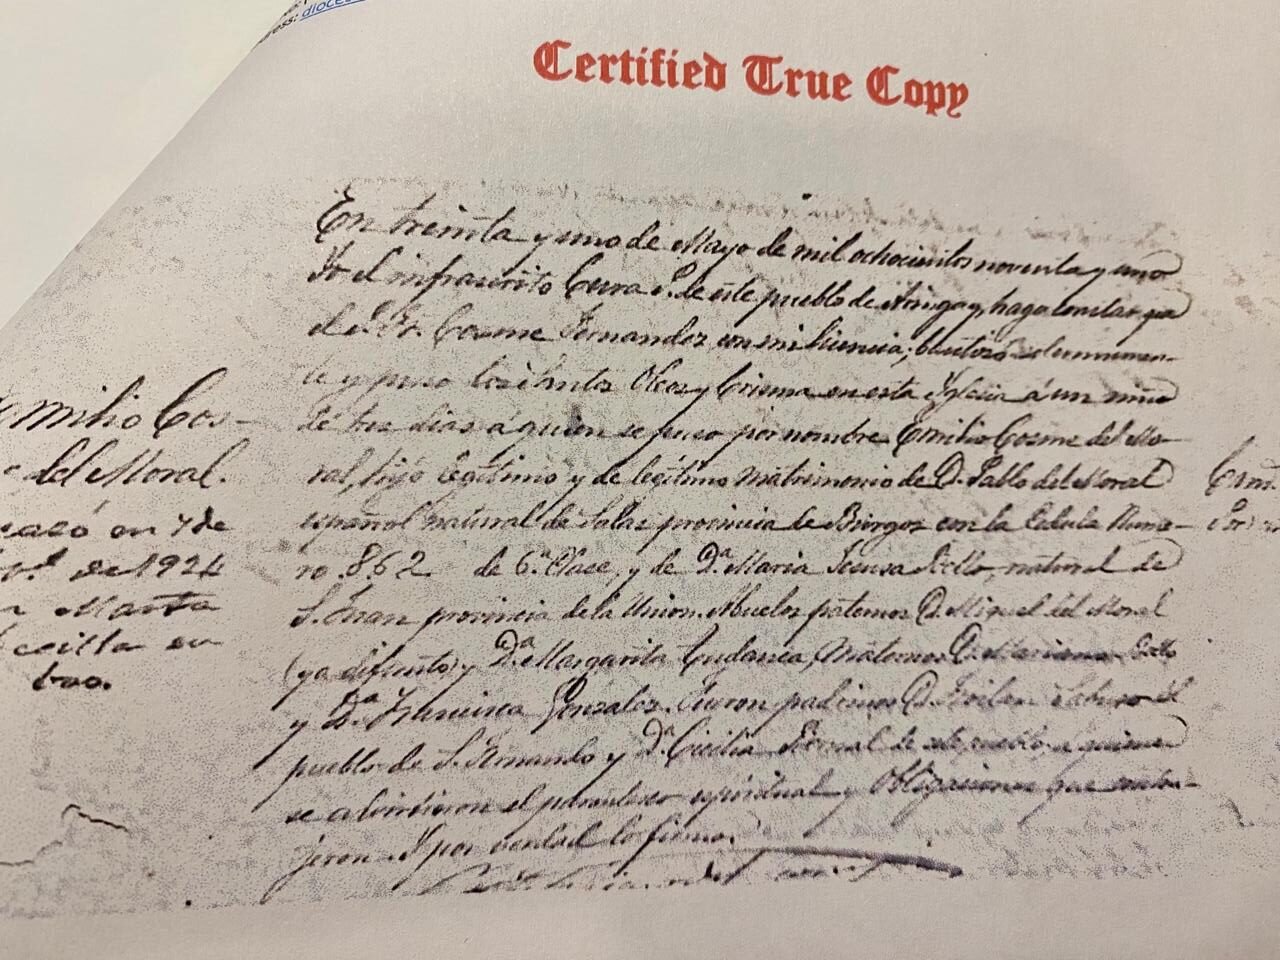 ress: dioces
Certified True Copy
En treinta y uno de Mayo de mil ochocientos noventa y uno
Yo el infrascrito Cura P. de este pueblo de Aringay, hago constar que
el P. Fr. Cosme Fernandez con mi licencia, bautizó solemnemen-
te y puso los Santos Oleos y Crisma en esta Iglesia á un niño
de tres dias á quien se puso por nombre Emilio Cosme del Mo-
ral, hijo legítimo y de legítimo matrimonio de D. Pablo del Moral
español natural de Salas provincia de Burgos con la Cedula Nume-
ro 862 de 6ª Clase, y de Dª Maria Tello, natural de
S. Juan provincia de la Union. Abuelos paternos D. Miguel del Moral
(ya difunto) y Dª Margarita maternos D. Mariano Tello
y Dª Francisca Gonzalez. Fueron padrinos D. del
pueblo de S. Fernando y Dª Cecilia Bernal de este pueblo, á quienes
se advirtieron el parentesco espiritual y obligaciones que contra-
jeron. Y por verdad lo firmo.
milio Cos-
del Moral.
casó en 7 de
de 1924
Marta
cilla en
bao.